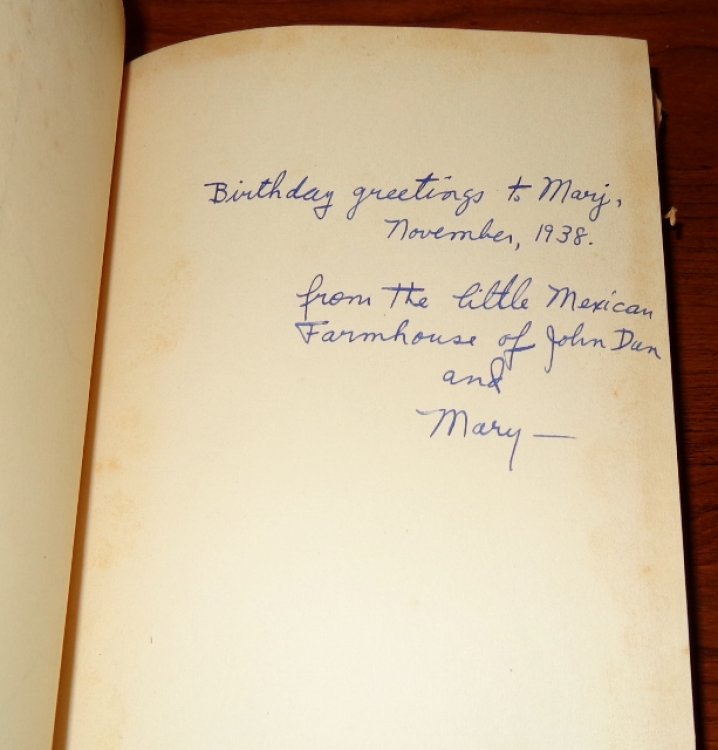 Birthday greetings to Marj,
November, 1938.
from the little Mexican
Farmhouse of John Dan
and
Mary—